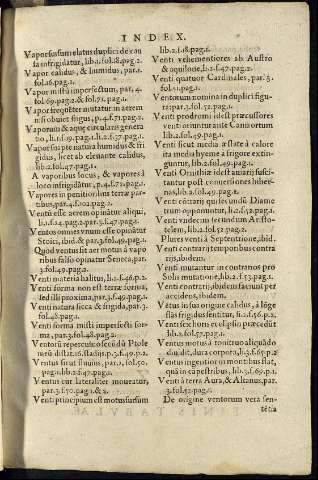 INDEX.
Vapor sursum elatus duplici de cau
sa infrigidatur, lib.2.fol.18.pag.2.
Vapor calidus, & humidus, par.1.
fol.16.pag.1.
Vapor misti imperfectum, par.4.
fol.69.pag.2.& fol.75.pag.1.
Vapor frequenter mutatur in aerem
nisi obuiet frigus, p.4.f.71.pag.2.
Vaporum & aquę circularis genera
tio, li.1.f.19.pag.1.li.2.f.37.pag.1.
Vapor suapte natura humidus & fri
gidus, licet ab eleuante calidus,
lib.2.fol.47.pag.1.
A vaporibus locus, & vapores à
loco infrigidātur, p.4.f.72.pag.1.
Vapores in penitioribus terræ par-
tibus, par.4.f.102.pag.2.
Ventū esse aerem opinātur aliqui,
li.1.f.24.pag.2.par.3.f.47.pag.1.
Ventos omnes vnum esse opinātur
Stoici, ibid.& par.3.fol.49.pag.1.
Quod ventus sit aer motus à vapo
ribus falso opinatur Seneca, par.
3.fol.49.pag.1.
Venti materia halitus, li.2.f.46.p.2.
Venti forma non est terræ forma,
sed illi proxima, par.3.f.49.pag.1.
Venti natura sicca & frigida, par.3
fol.48.pag.1.
Venti forma misti imperfecti for-
ma, par.3.fol.48.pag.1.
Ventorū repercussio secūdū Ptole
męū distat.16.stadijs.p.3.f.49.p.2.
Ventus sicut fluuius, par.2.fol.50.
pag.1.lib.2.f.47.pag.1.
Ventus cur lateraliter moueatur,
par.3.f.50.pag.1.& 2.
Venti principium est motus sursum
lib.2.f.18.pag.1.
Venti vehementiores ab Austro
& aquilone, li.2.f.47.pag.2.
Venti quatuor Cardinales, par.3.
fol.51.pag.1.
Ventorum nomina in duplici figu-
ra; p.3.fol.52.pag.1.
Venti prodromi idest præcursores
venti oriuntur ante Canicortum
lib.2.fol.49.pag.1.
Venti sicut media æstate à calore
ita media hyeme à frigore extin
guuntur, lib.2.fol.49.pag.1.
Venti Ornithiæ idest auiarij susci-
tantur post conuersiones hiber-
nas, lib.2.fol.49.pag.1.
Venti cōtrarij qui secundū Diame
trum opponuntur, li.2.f.52.pag.1.
Venti vndecim secundum Aristo-
telem, lib.2.f.52.pag.1.
Plures venti à Septentrione, ibid.
Venti contrarij temporibus contra
rijs, ibidem.
Venti mutantur in contrarios pro
Solis mutatione, lib.2.f.53.pag.1.
Venti contrarij, ibidem fiunt per
accedens, ibidem.
Vētus in sua origine calidus, à lōge
flās frigidus sentitur, li.2.f.56.p.2.
Ventus ex horis eclipsis præcedūt
lib.2.fol.57.pag.1.
Ventus motus à tonitruo aliquādo
diuidit, dura corpora, li.3.f.65.p.2
Ventus ingentior in montibus stat,
quā in capestribus, lib.3.f.69.p.1.
Venti à terra Aura, & Altanus, par
3.fol.52.pag.1.
De origine ventorum vera sen-
tētia